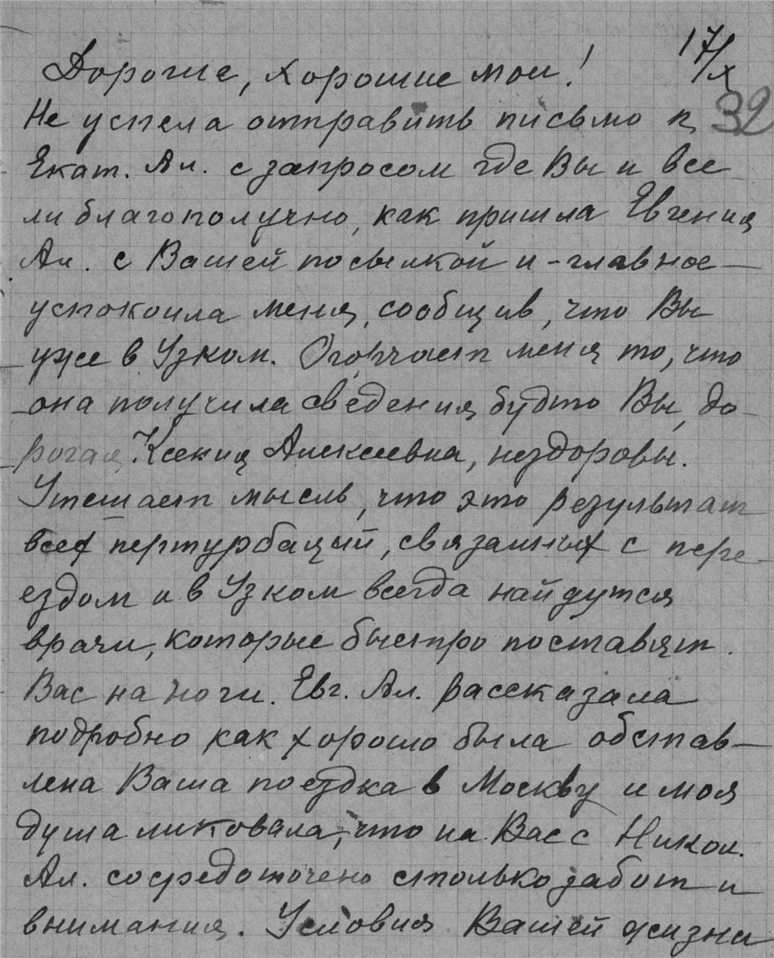 17/X
Дорогие, хорошие мои!
32
Не успела отправить письмо к
Екат. Ал. с запросом где Вы и все
ли благополучно, как пришла Евгения
Ал. с Вашей посылкой и - главное -
успокоила меня, сообщив, что Вы
уже в Узком. Огорчает меня то, что
она получила сведения будто Вы, до-
рогая Ксения Алексеевна, нездоровы.
Утешает мысль, что это результат
всех пертурбаций, связанных с пере-
ездом и в Узком всегда найдутся
врачи, которые быстро поставят
Вас на ноги. Евг. Ал. рассказала
подробно как хорошо была обстав-
лена Ваша поездка в Москву и моя
душа ликовала, что на Вас с Никол.
Ал. сосредоточено столько забот и
внимания. Условия Вашей жизни